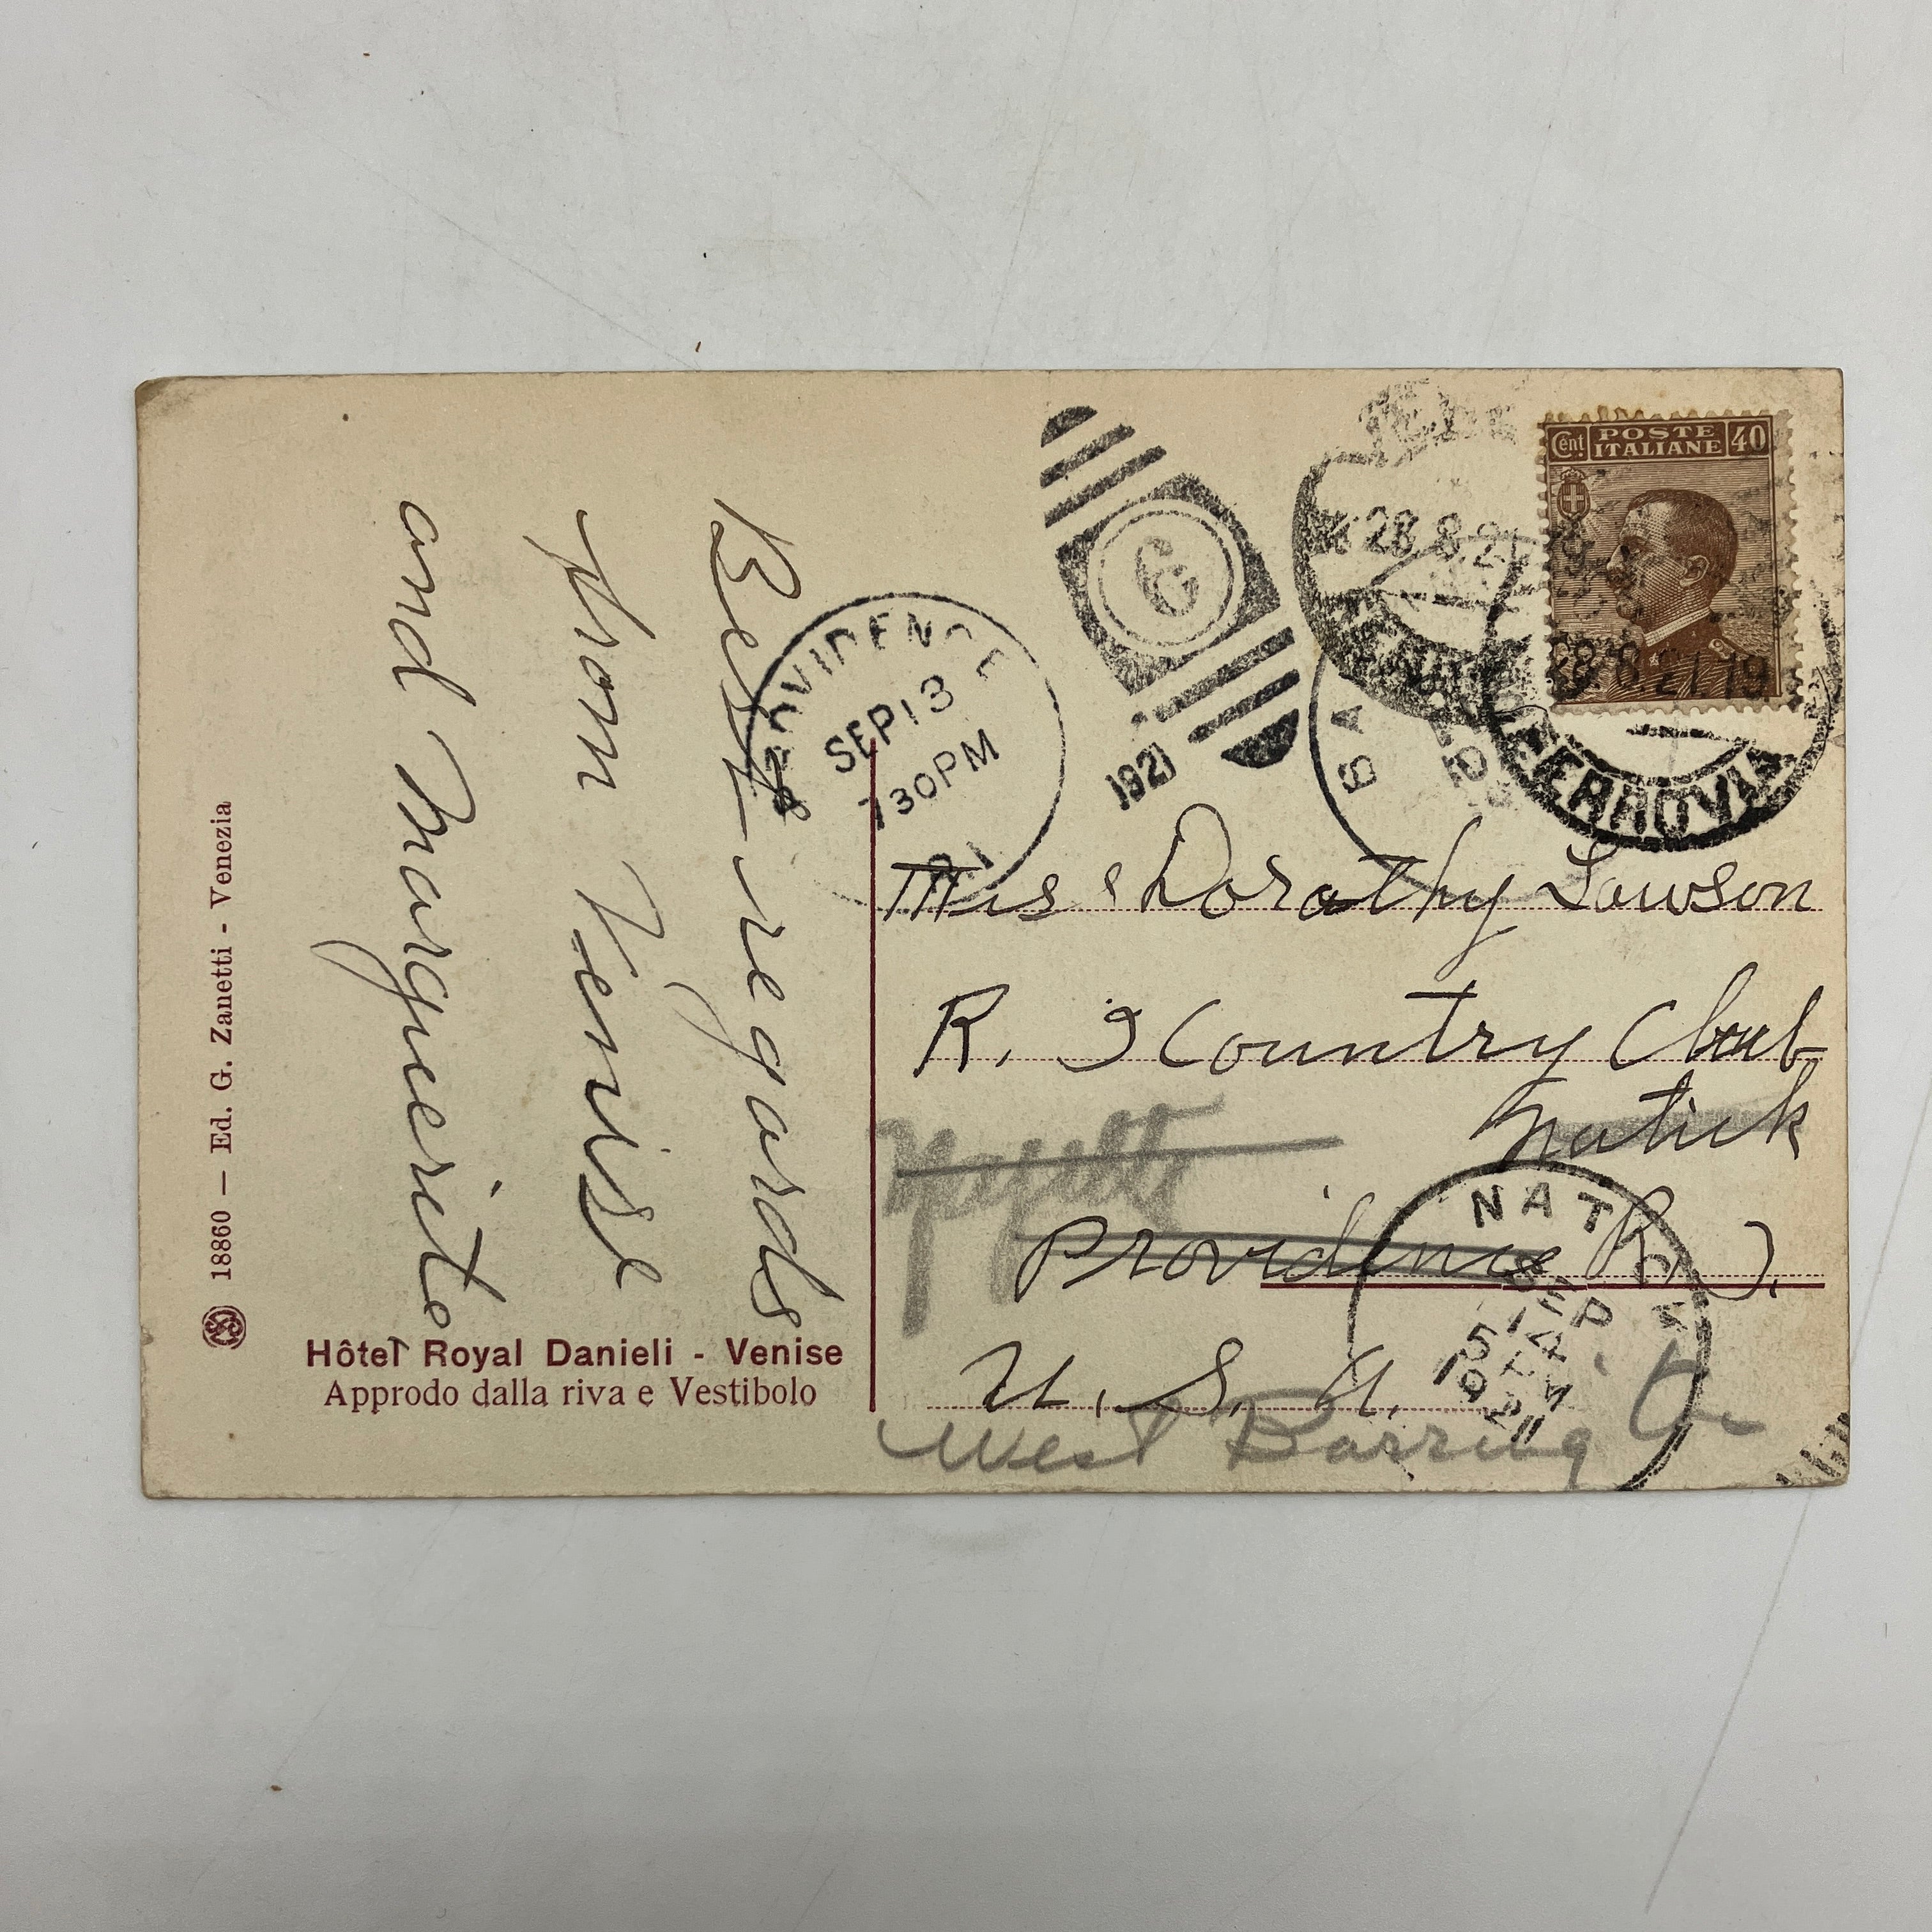 Best regards
from Venise
and Marguerite
18860 — Ed. G. Zanetti - Venezia
Hôtel Royal Danieli - Venise
Approdo dalla riva e Vestibolo
PROVIDENCE
SEP 13
730PM
R.I.
1921
6
28.8.21
28.8.21.19
FERROVIA
Cent POSTE ITALIANE 40
Miss Dorothy Lawson
R. I Country Club
Natick
Providence R I.
U. S. A.
West Barring
NAT
SEP
14
5
1921